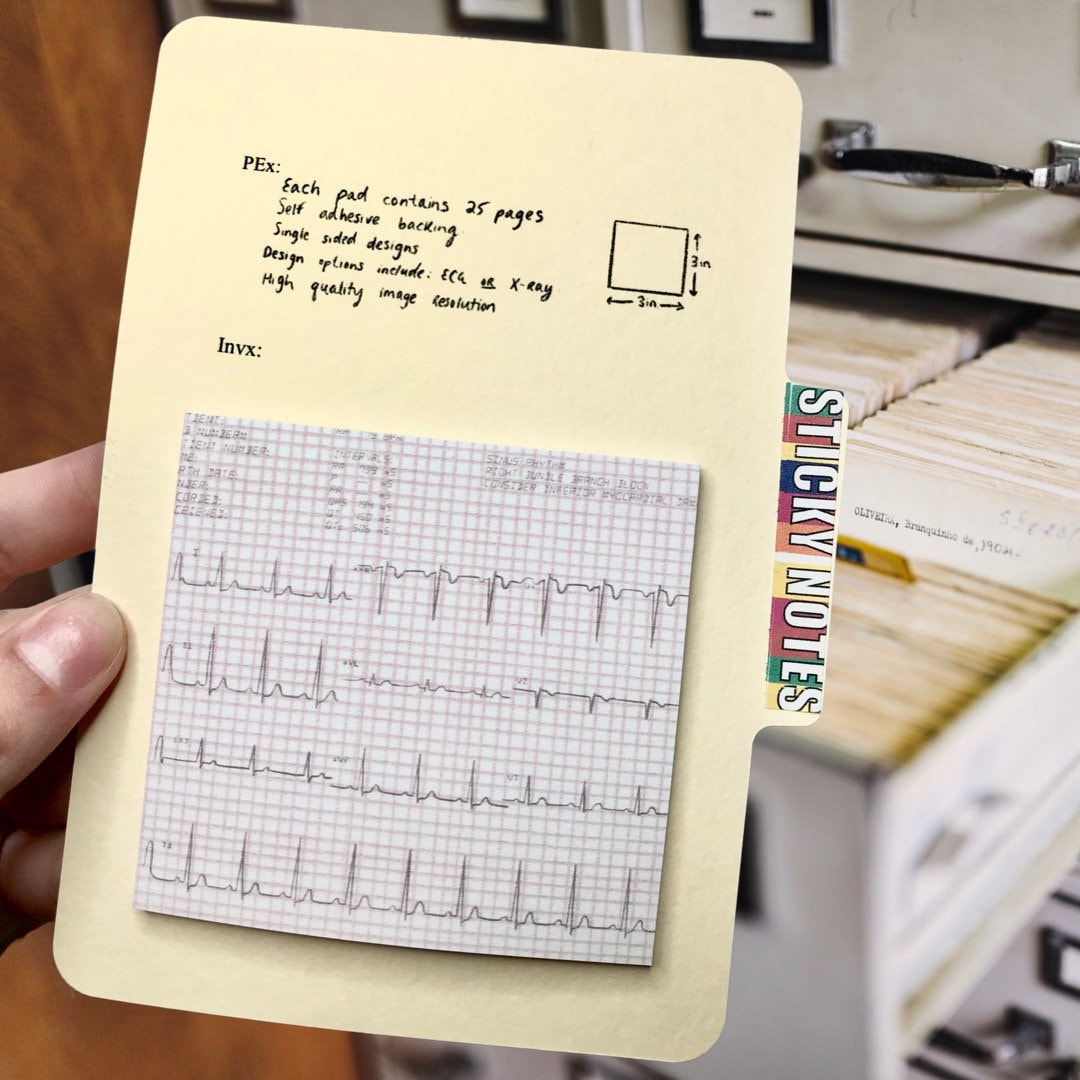 PEx:
Each pad contains 25 pages
Self adhesive backing.
Single sided designs
Design options include: ECG OR X-Ray
High quality image resolution
3in
3in
Invx:
NUMBER:
INTERVALS:
SINUS RHYTHM
RIGHT BUNDLE BRANCH BLOCK
CONSIDER INFERIOR MYOCARDIAL
I
II
aVL
V1
III
aVF
II
STICKY NOTES
OLIVEIRA, Branquinho de,